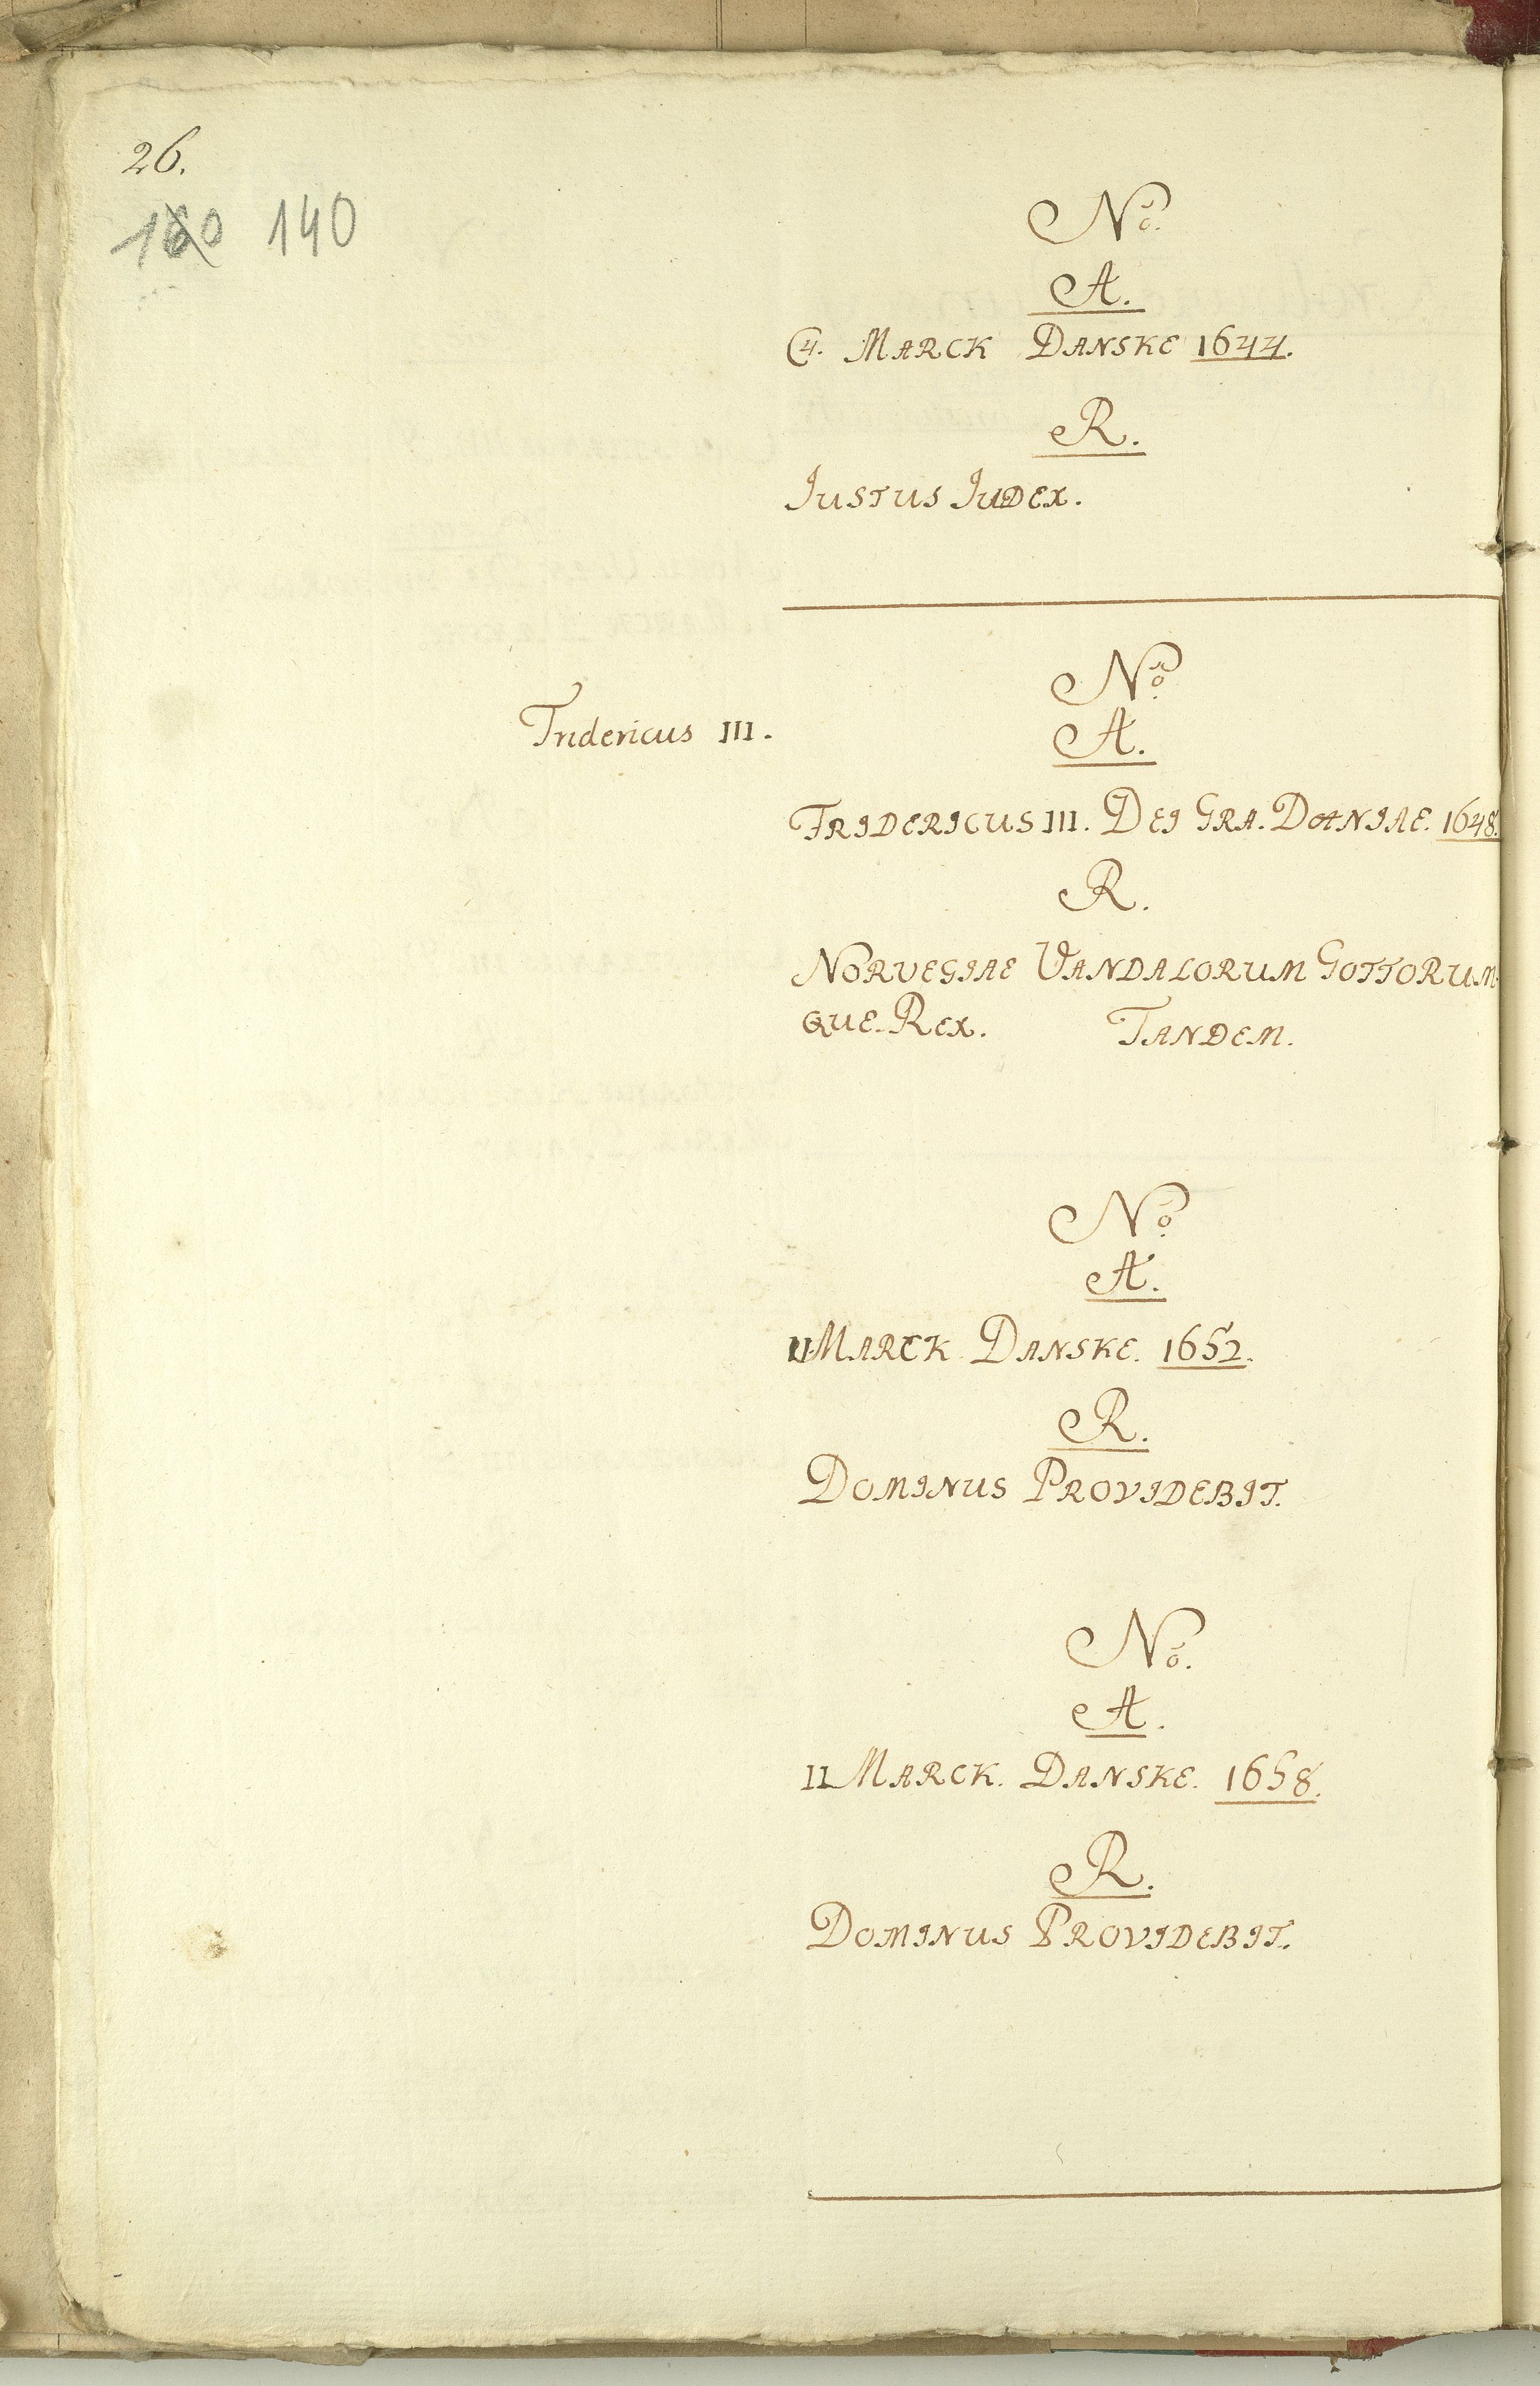 26.
160 140
No.
A.
4. MARCK DANSKE 1644.
R.
IUSTUS IUDEX.
No.
Fridericus III.
A.
FRIDERICUS III. DEI GRA. DANIAE. 1648.
R.
NORVEGIAE VANDALORUM GOTTORUM
QUE. REX. TANDEM.
No.
A.
II MARCK DANSKE. 1652.
R.
DOMINUS PROVIDEBIT.
No.
A.
II MARCK. DANSKE. 1658.
R.
DOMINUS PROVIDEBIT.